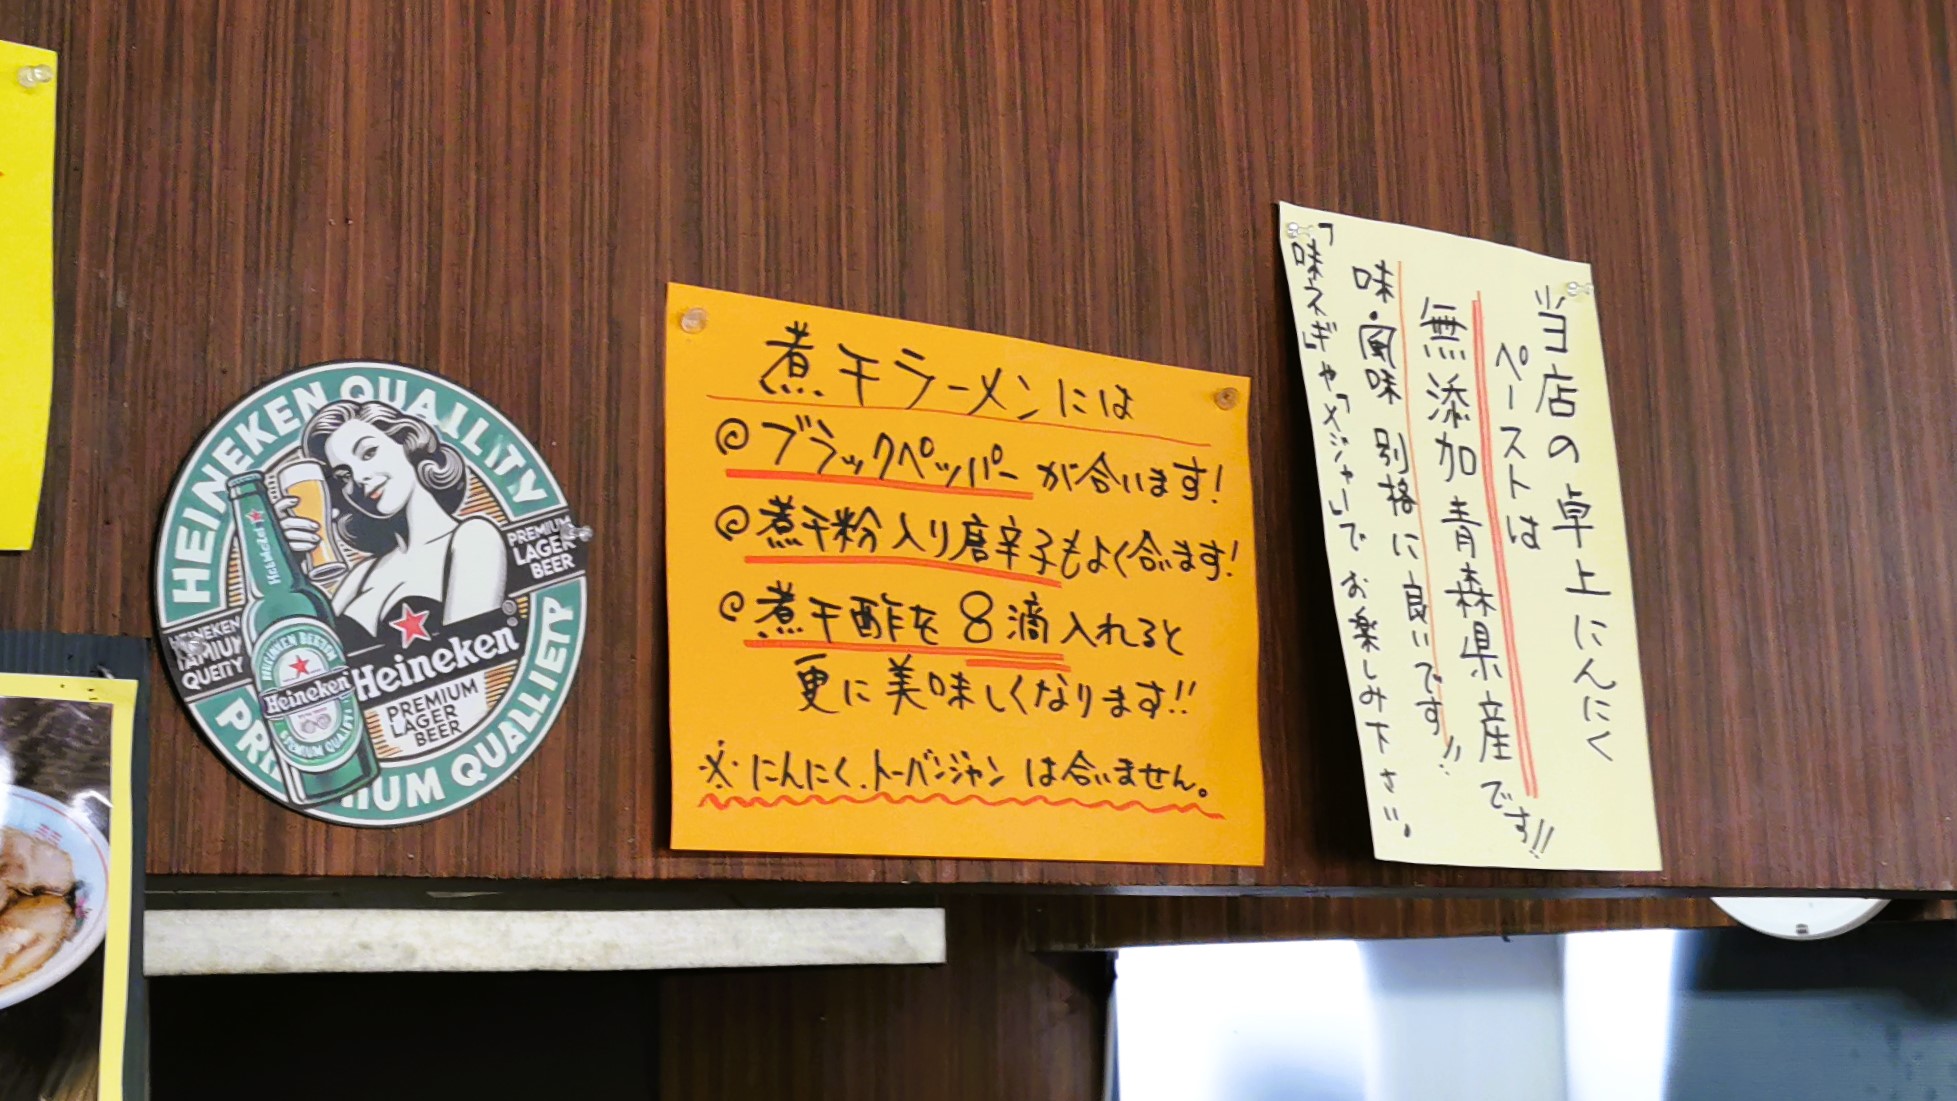 HEINEKEN QUALITY
PREMIUM
LAGER
BEER
HEINEKEN
QUEITY
Heineken
Heineken
PREMIUM
LAGER
BEER
QUALLIETY
煮干ラーメンには
◎ブラックペッパーが合います!
◎煮干粉入り唐辛子もよく合ます!
◎煮干酢を8滴入れると
更に美味しくなります!!
※にんにく.トーバンジャンは合いません。
当店の卓上にんにく
ペーストは
無添加青森県産です!!
味・風味 別格に良いです!!
「味スギ」や「メジャー」でお楽しみ下さい。